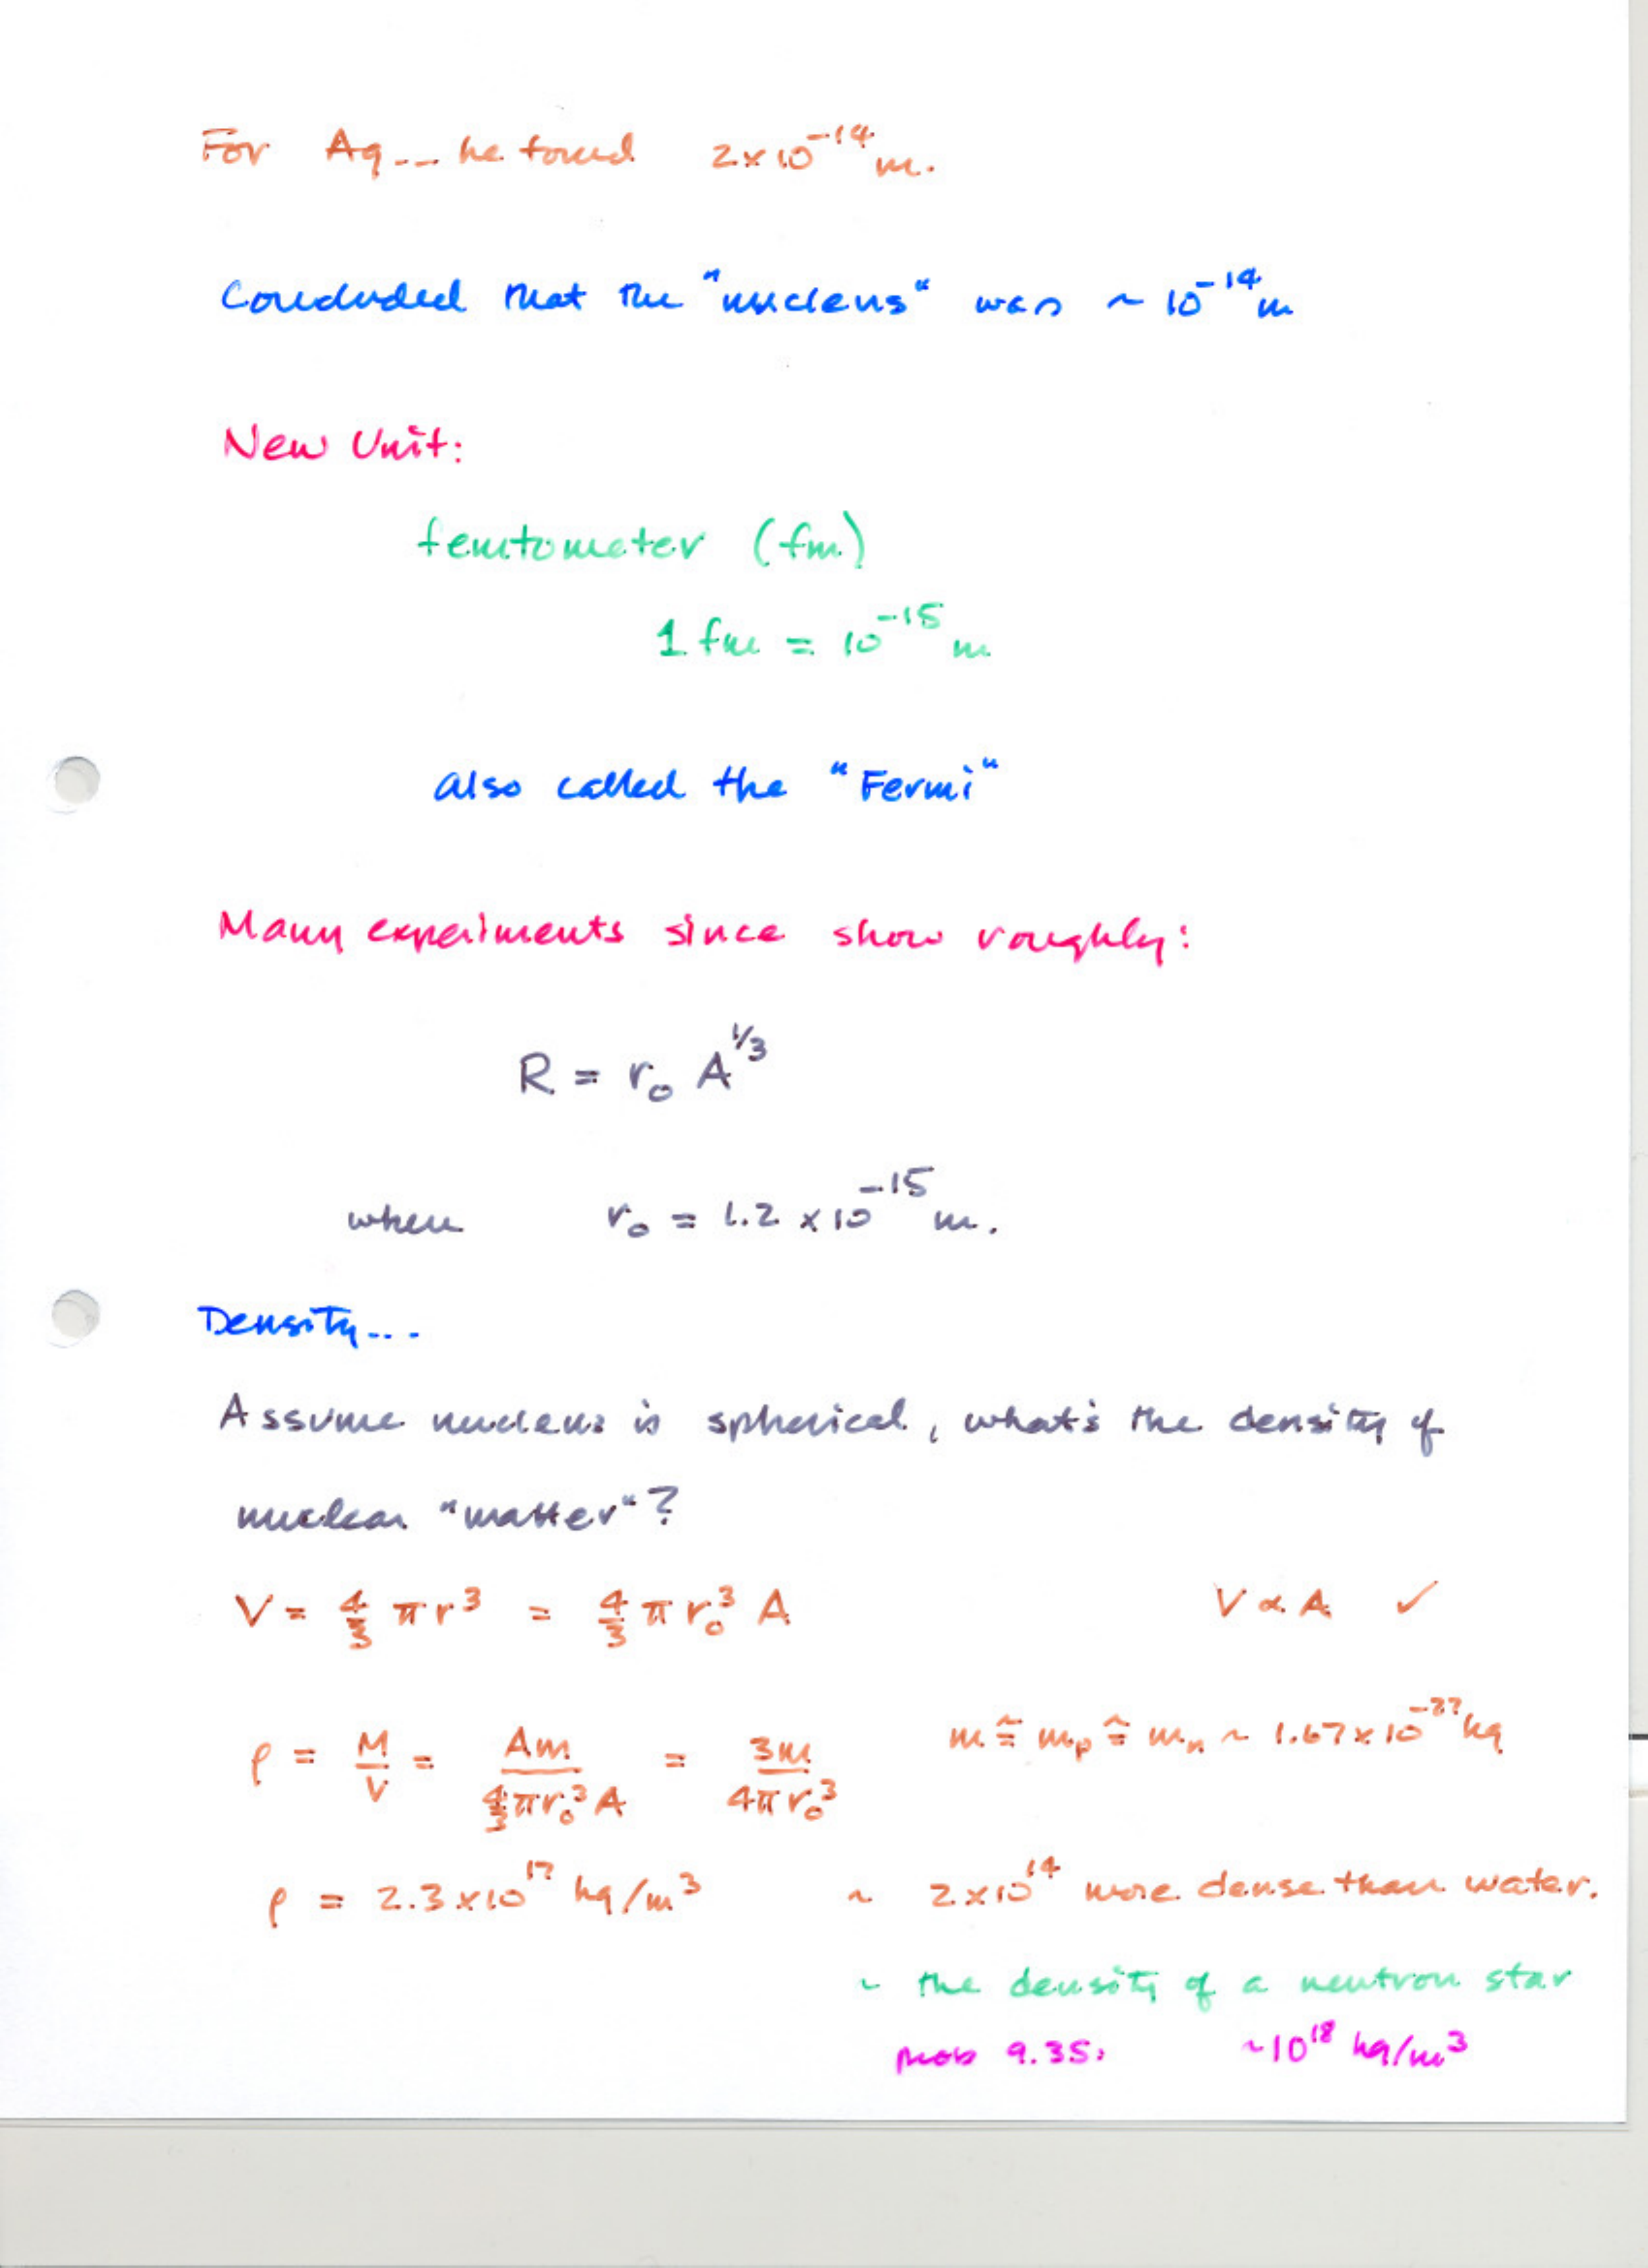 For Ag -- he found 2×10⁻¹⁴ m.
Concluded that the "nucleus" was ~ 10⁻¹⁴ m
New Unit:
femtometer (fm)
1 fm = 10⁻¹⁵ m
also called the "Fermi"
Many experiments since show roughly:
R = r₀ A^(1/3)
where r₀ = 1.2 × 10⁻¹⁵ m.
Density...
Assume nucleus is spherical, what's the density of
nuclear "matter"?
V = 4/3 π r³ = 4/3 π r₀³ A V ∝ A ✓
ρ = M/V = Am / (4/3 π r₀³ A) = 3m / (4π r₀³) m ≅ mₚ ≅ mₙ ~ 1.67 × 10⁻²⁷ kg
ρ = 2.3 × 10¹⁷ kg/m³ ~ 2×10¹⁴ more dense than water.
~ the density of a neutron star
prob 9.35: ~10¹⁸ kg/m³